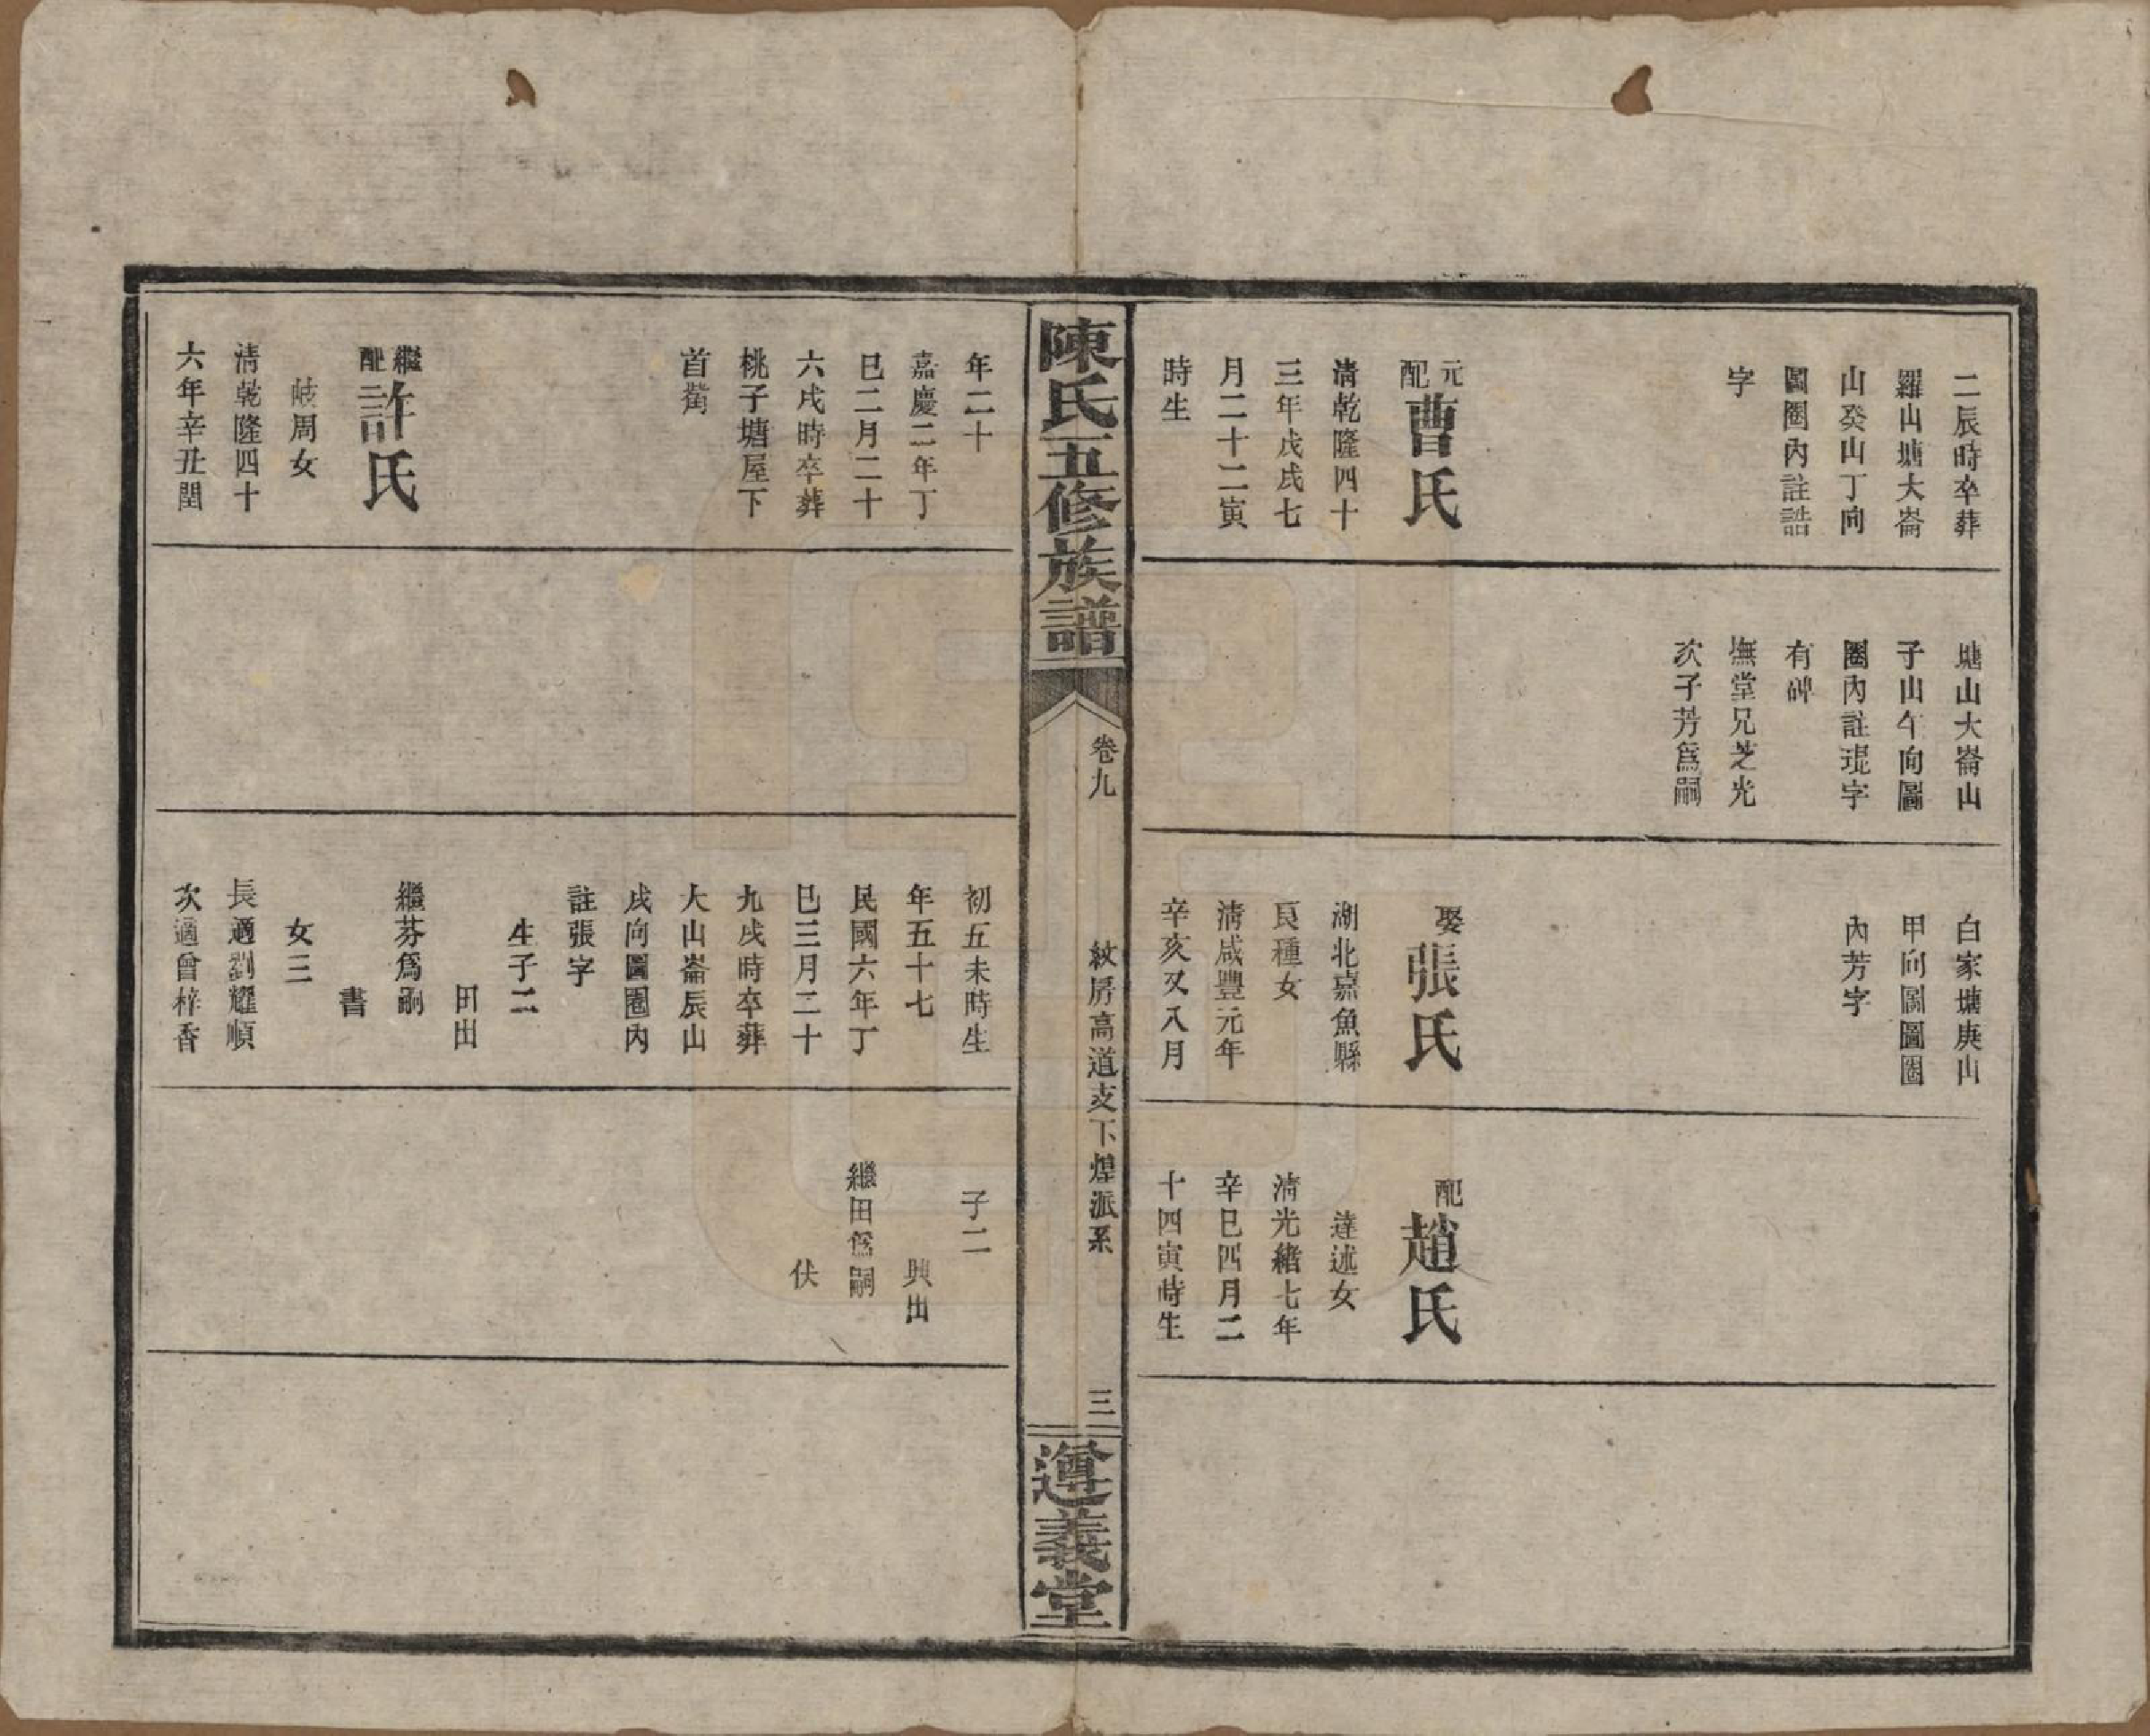 二辰時卒葬
羅山塘大崙
山癸山丁向
圖圈內註誥
字
元配曹氏
清乾隆四十
三年戊戌七
月二十二寅
時生
塘山大崙山
子山午向圖
圈內註琨字
有碑
撫堂兄芝光
次子芳爲嗣
白家塘庚山
甲向圖圖圈
內芳字
娶張氏
湖北嘉魚縣
良種女
清咸豐元年
辛亥又八月
配趙氏
達述女
清光緒七年
辛巳四月二
十四寅時生
陳氏五修族譜
卷九
紋房高道支下煌派系
三
遵義堂
年二十
嘉慶二年丁
巳二月二十
六戌時卒葬
桃子塘屋下
首
繼配許氏
岐周女
清乾隆四十
六年辛丑閏
初五未時生
年五十七
民國六年丁
巳三月二十
九戌時卒葬
大山崙辰山
戌向圖圈內
註張字
生子二
田出
繼芬爲嗣
書
女三
長適劉耀順
次適曾梓香
子二
興出
繼田爲嗣
伏